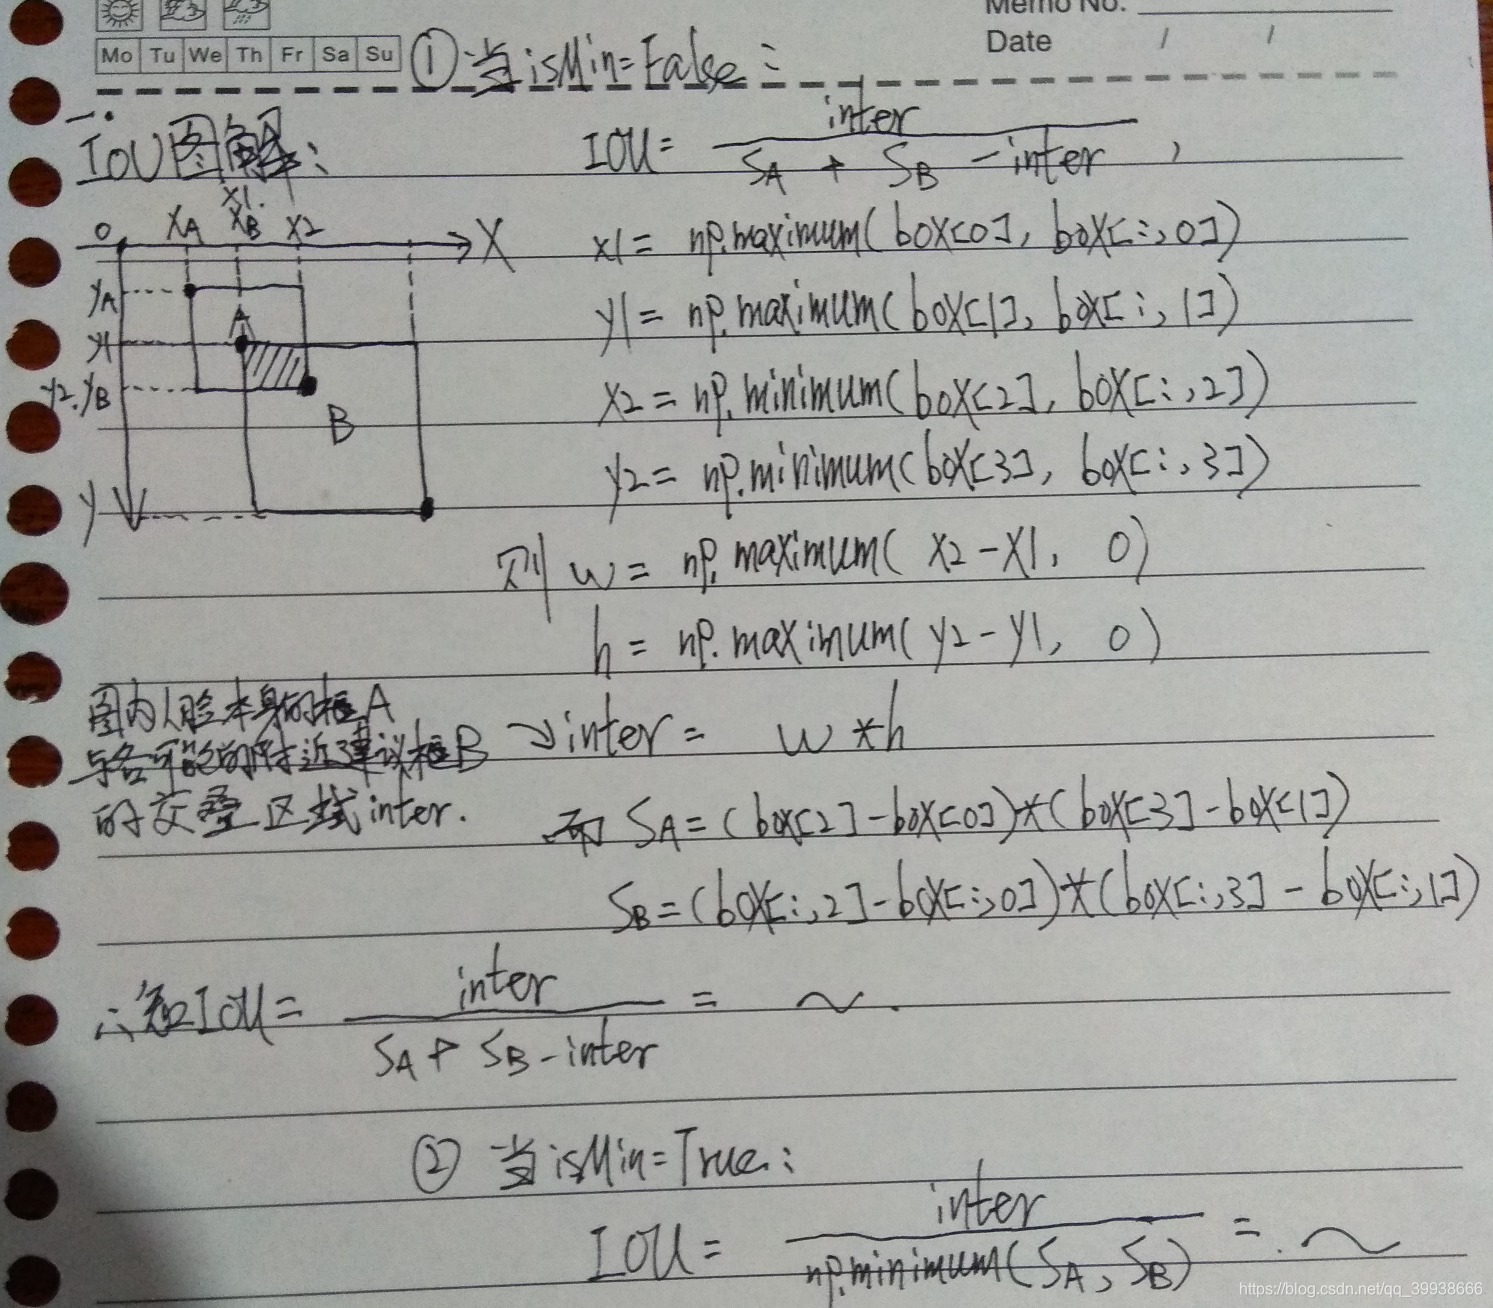 Memo No.
Mo Tu We Th Fr Sa Su
Date / /
①当isMin=False:
一.
IoU图解:
IOU= inter
SA + SB -inter ,
X1.
0 XA XB X2 X
x1= np.maximum(box[0], box[:,0])
yA
A
y1
y1= np.maximum(box[1], box[:,1])
y2.yB
B
x2= np.minimum(box[2], box[:,2])
y
y2= np.minimum(box[3], box[:,3])
则 w= np.maximum( x2-x1, 0)
h= np.maximum( y2-y1, 0)
图内人脸本身的框A
与各可能的附近建议框B
的交叠区域inter.
→inter= w*h
而 SA=(box[2]-box[0])*(box[3]-box[1])
SB=(box[:,2]-box[:,0])*(box[:,3]-box[:,1])
∴知IOU= inter = ~.
SA+SB-inter
② 当isMin=True:
IOU= inter = ~
np.minimum(SA, SB)
https://blog.csdn.net/qq_39938666